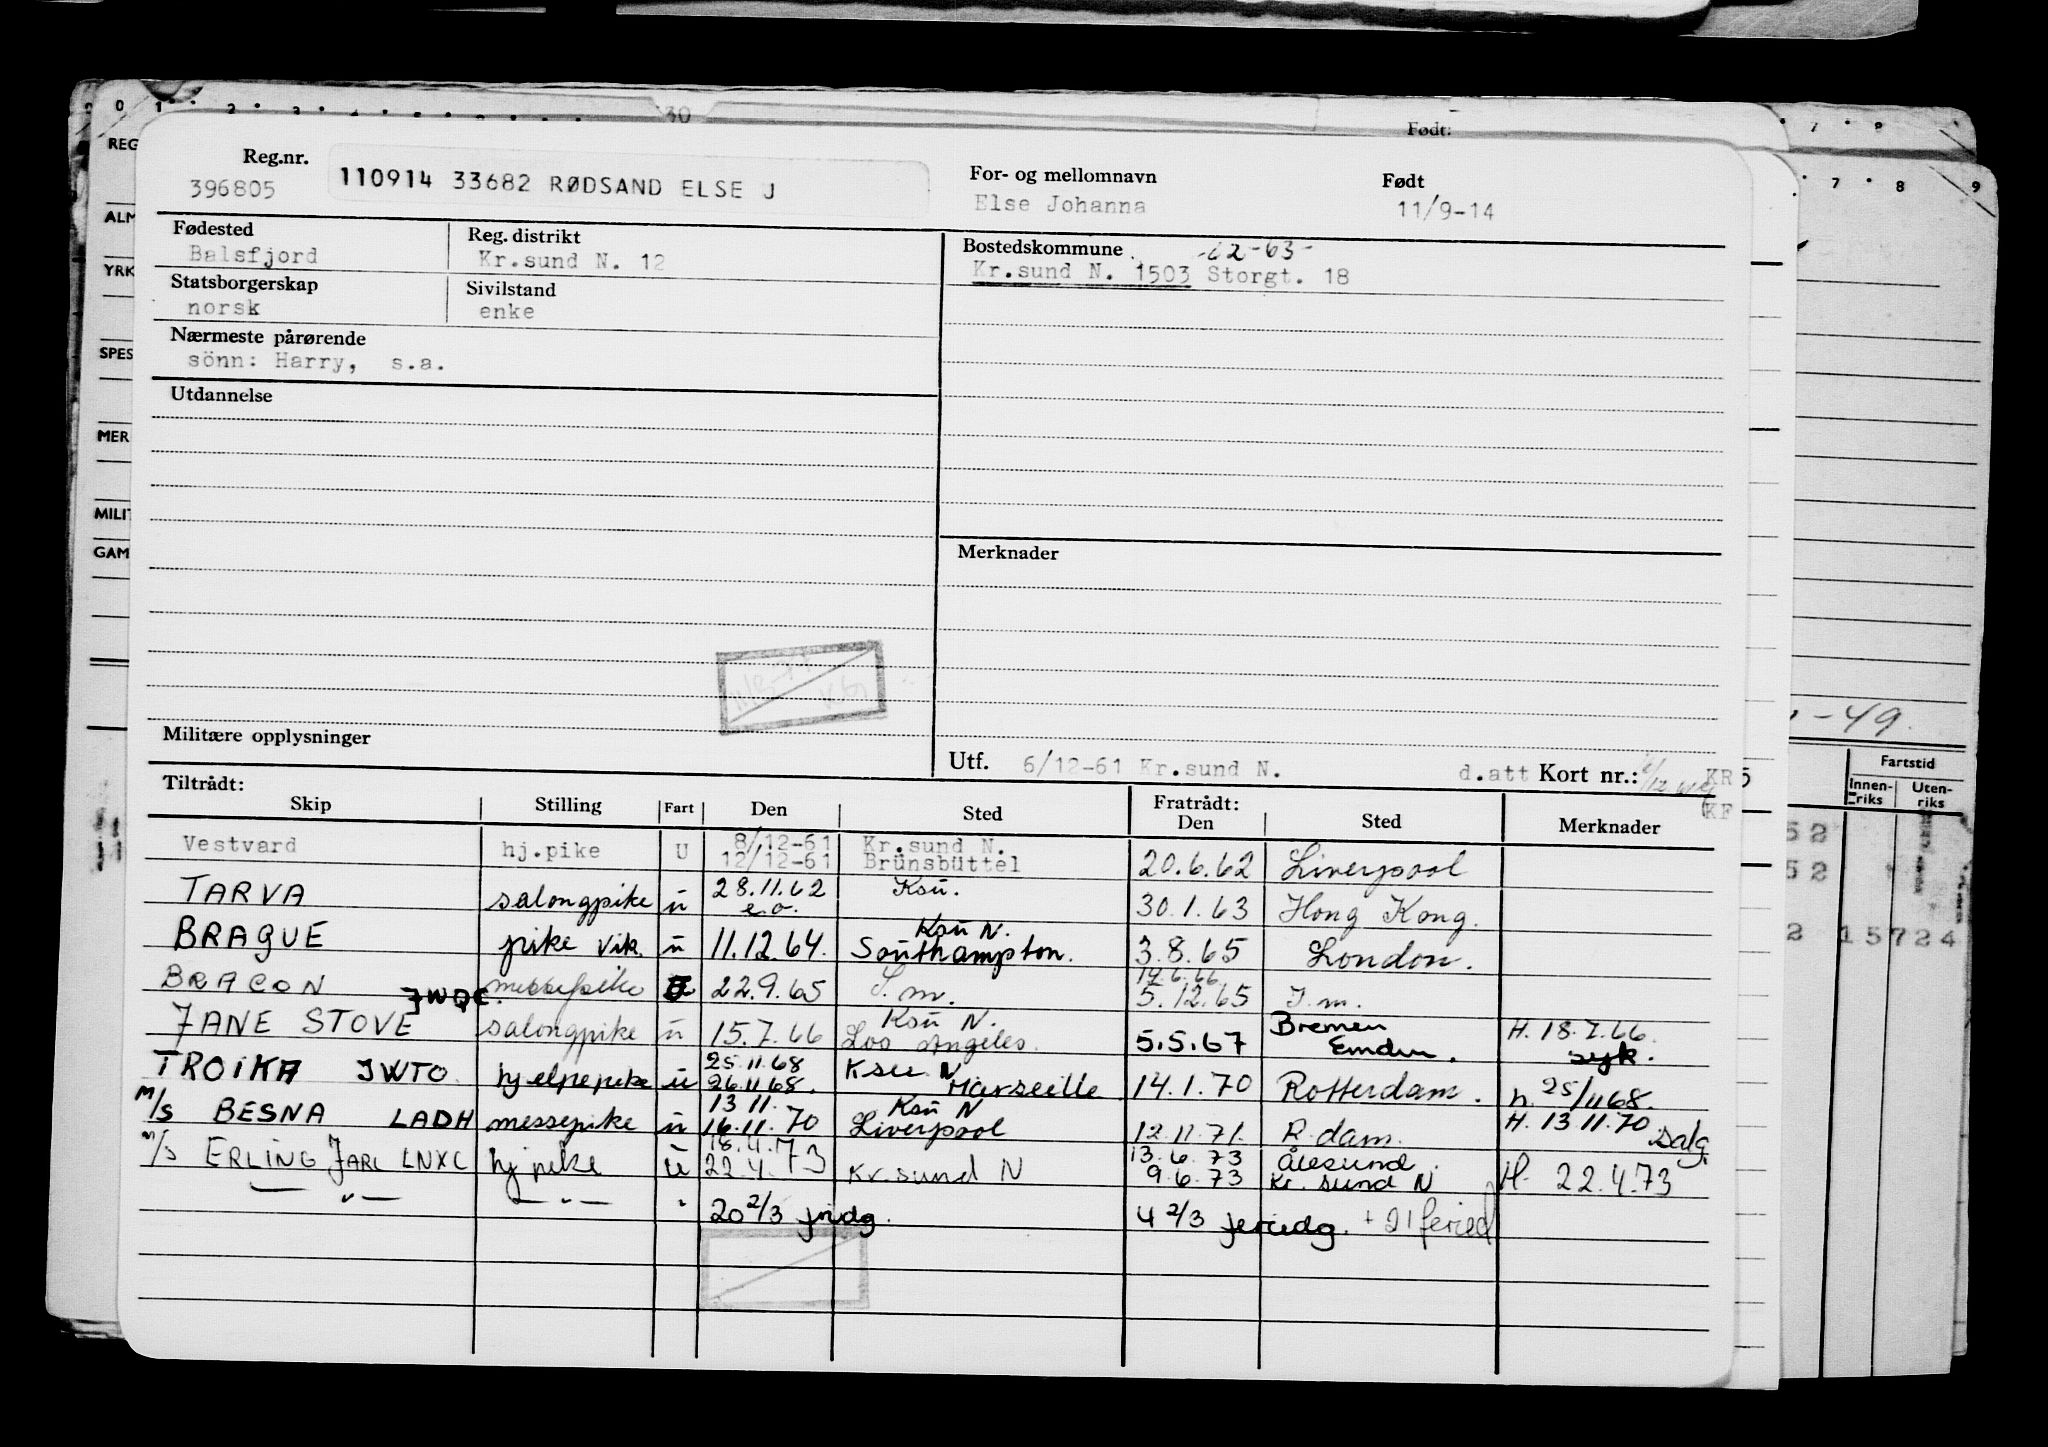 Født:
Reg.nr.
396805
110914 33682 RØDSAND ELSE J
For- og mellomnavn
Else Johanna
Født
11/9-14
Fødested
Balsfjord
Reg. distrikt
Kr.sund N. 12
Bostedskommune -62-63-
Kr.sund N. 1503 Storgt. 18
Statsborgerskap
norsk
Sivilstand
enke
Nærmeste pårørende
sönn: Harry, s.a.
Utdannelse
Merknader
Militære opplysninger
Utf. 6/12-61 Kr.sund N. d.att Kort nr.:
Tiltrådt:
Skip Stilling Fart Den Sted Fratrådt: Den Sted Merknader
Vestvard hj.pike U 8/12-61 Kr.sund N.
12/12-61 Brünsbüttel 20.6.62 Liverpool
TARVA salongpike u 28.11.62 Ksu. 30.1.63 Hong Kong.
e.o.
BRAGUE pike vik. u 11.12.64. Ksu N. Southampton. 3.8.65 London.
BRACON messepike 22.9.65 S.m. 5.12.65 I.m.
JANE STOVE JWQE. salongpike u 15.7.66 Ksu N. Los Angeles. 5.5.67 Bremen Emden. H. 18.7.66 syk.
TROIKA JWTO. hjelpepike u 25.11.68 26.11.68. Ksu N Marseille 14.1.70 Rotterdam. h. 25/11 68.
M/S BESNA LADH messepike u 13 11. 16.11.70 Ksu N Liverpool 12.11.71. R.dam. H. 13 11.70 salg.
M/S ERLING JARL LNXC hj pike u 18.4.73 22.4. Kr.sund N 13.6.73 Ålesund
9.6.73 Kr. sund N H. 22.4.73
— " — — " — " 20 2/3 fridg. 4 2/3 feriedg. + 21 feried
REG
ALM
YRK
SPES
MER
MILIT
GAM
-49.
Fartstid
Innen-riks Uten-riks
52
52
2 15724
KR5
KF